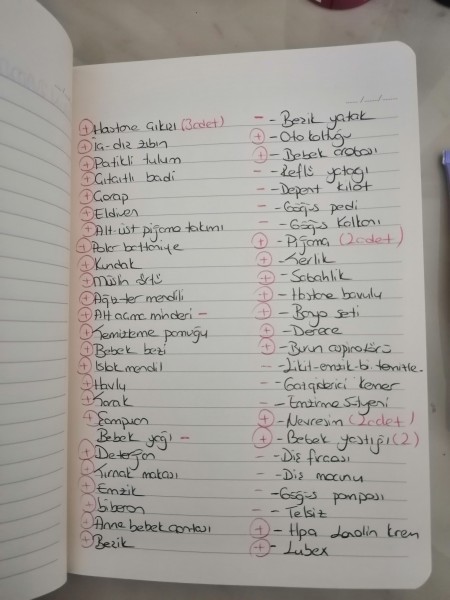 + Hastane çıkışı (3 adet)
+ iç-dış zıbın
+ Patikli tulum
+ Çıtçıtlı badi
+ Çorap
+ Eldiven
+ Alt-üst pijama takımı
+ Polar battaniye
+ Kundak
+ Müslin örtü
+ Ağız ter mendili
+ Alt açma minderi -
+ Temizleme pamuğu
+ Bebek bezi
+ Islak mendil
+ Havlu
+ Tarak
+ Şampuan
Bebek yağı -
+ Deterjan
+ Tırnak makası
+ Emzik
+ biberon
+ Anne bebek çantası
+ Beşik
- - Beşik yatak
+ - Oto koltuğu
+ - Bebek arabası
- - Reflü yatağı
- - Depent kilot
- - Göğüs pedi
- - Göğüs Kalkanı
+ - Pijama (2 adet)
+ - Terlik
+ - Sabahlık
+ - Hastane bavulu
+ - Banyo seti
+ - Derece
+ - Burun aspiratörü
- - Likit-emzik-bi. temizle-
- - Gaz giderici kemer
- - Emzirme Sütyeni
+ - Nevresim (2 adet)
+ - Bebek yastığı (2)
- - Diş fırçası
- - Diş macunu
- - Göğüs pompası
- - Telsiz
+ - Hpa Lanolin krem
+ - Lubex